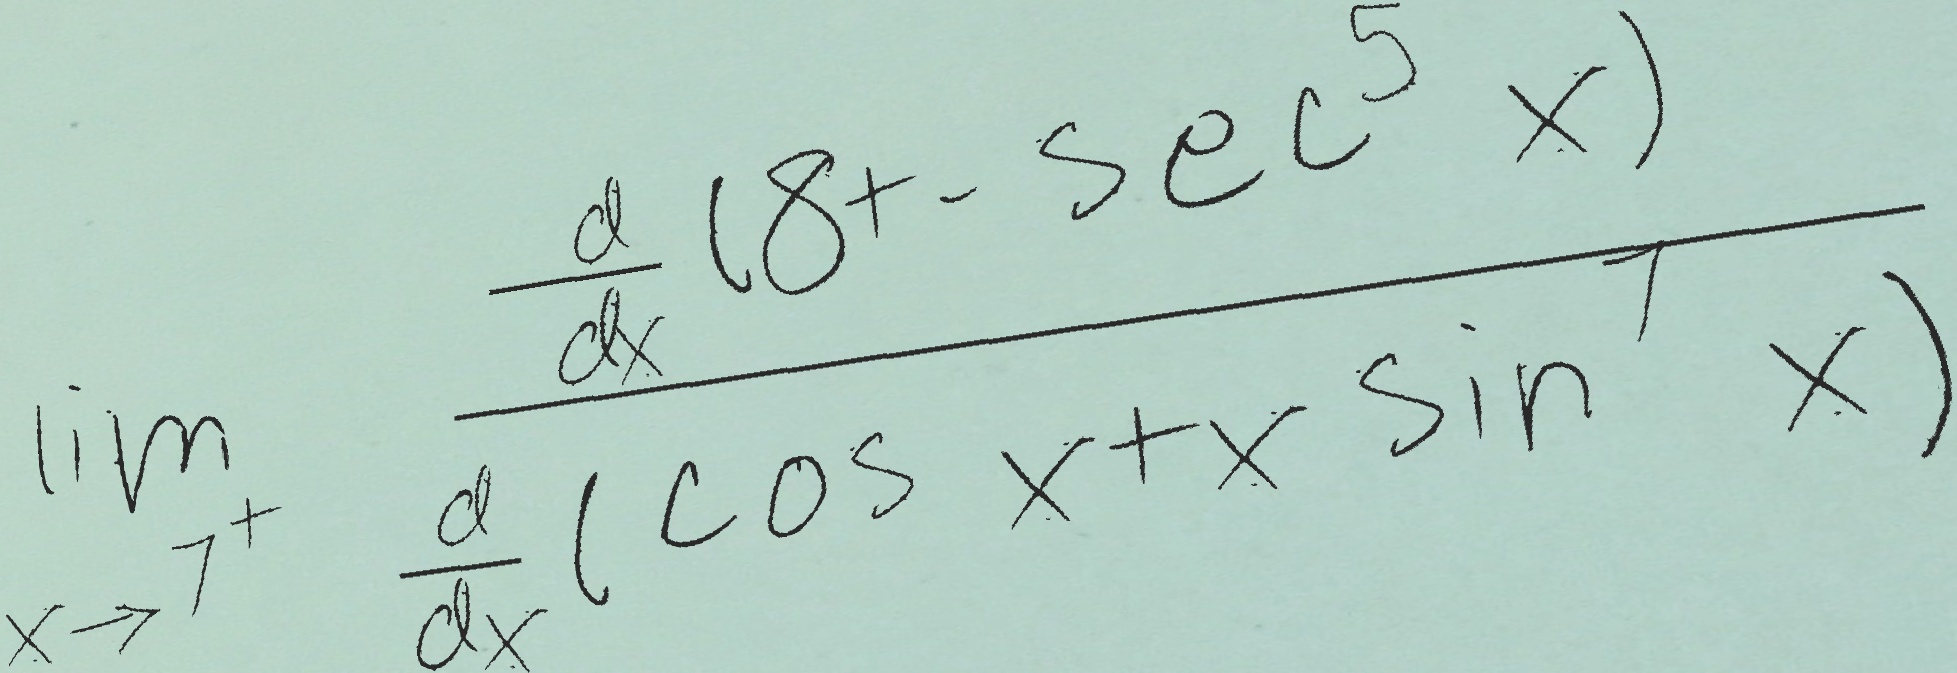 \lim_{x \to 7^+} \frac{\frac{d}{dx}(8 + - \sec^5 x)}{\frac{d}{dx}(\cos x + x \sin^7 x)}